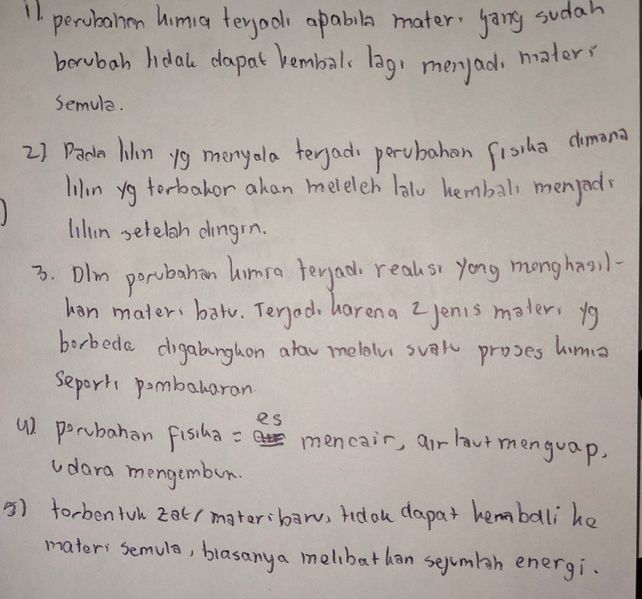 1). perubahan kimia terjadi apabila materi yang sudah
berubah tidak dapat kembali lagi menjadi materi
semula.
2) Pada lilin yg menyala terjadi perubahan fisika dimana
lilin yg terbakar akan meleleh lalu kembali menjadi
lilin setelah dingin.
3. Dlm perubahan kimia terjadi reaksi yang menghasil-
kan materi batu. Terjadi karena 2 jenis materi yg
berbeda digabungkan atau melalui suatu proses kimia
seperti pembakaran.
4). perubahan fisika = es mencair, air laut menguap,
udara mengembun.
5) terbentuk zat/materi baru, tidak dapat kembali ke
materi semula, biasanya melibatkan sejumlah energi.